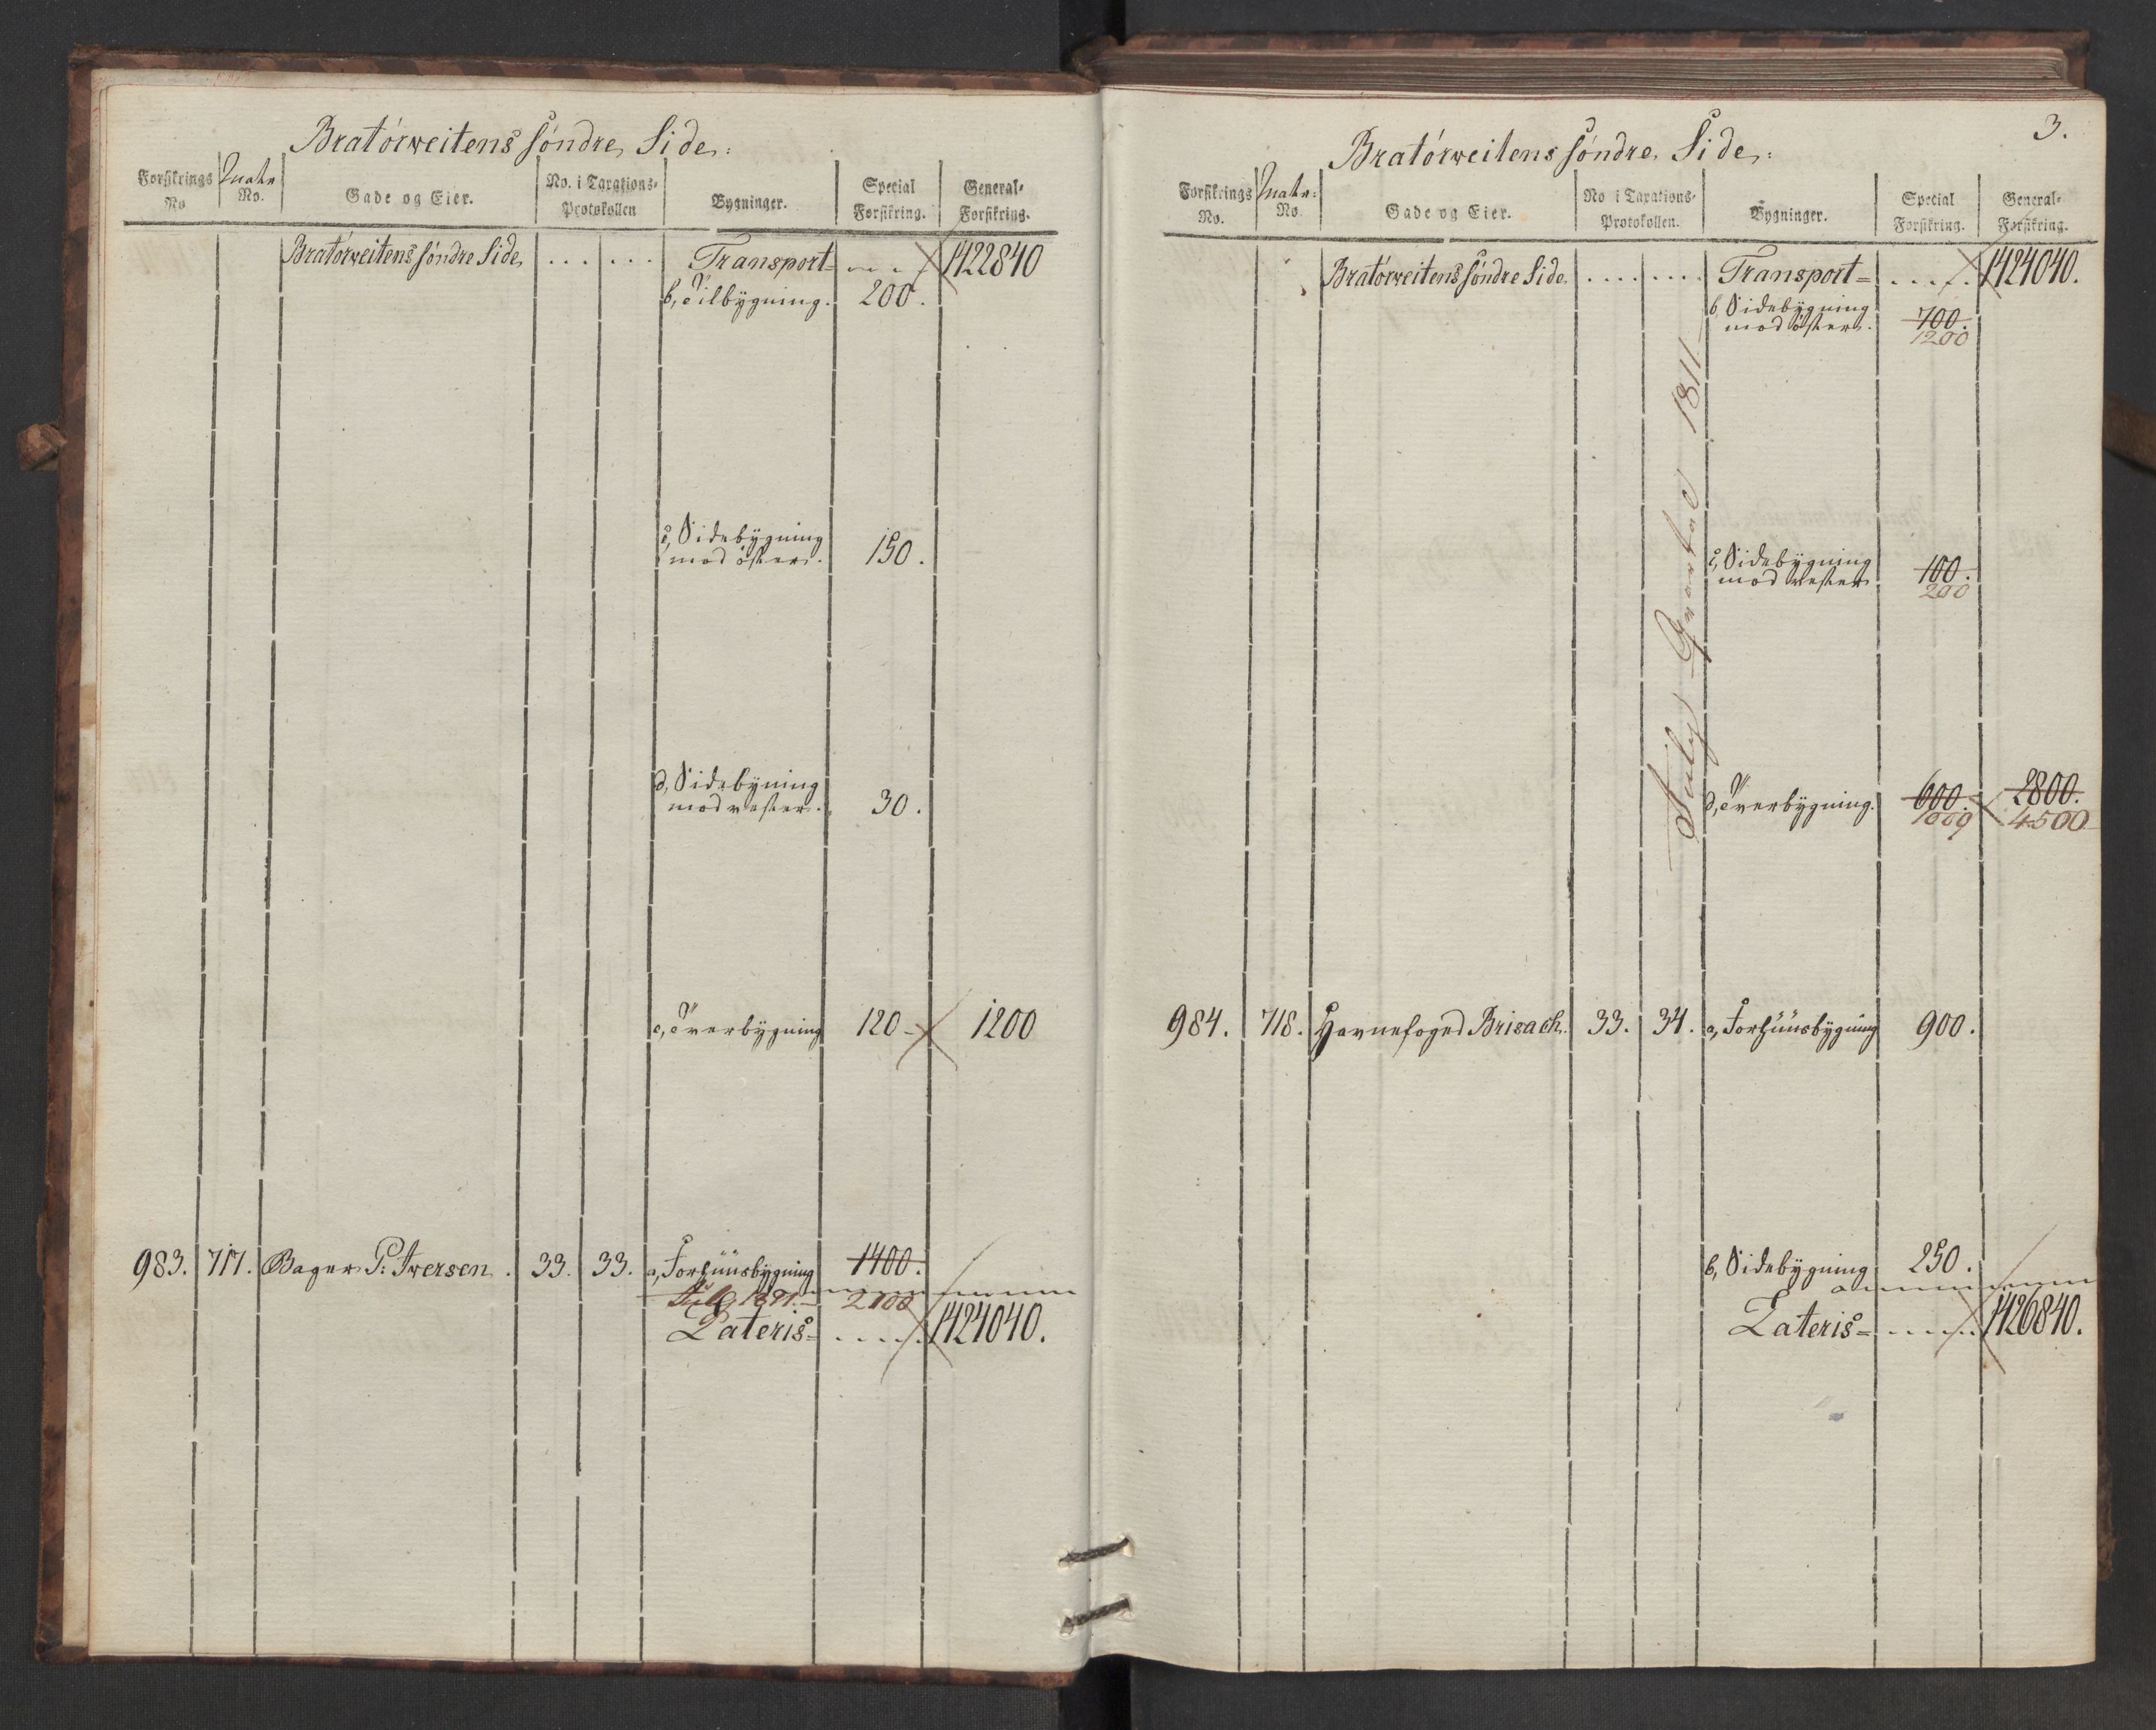 Bratórweitens söndre Side:
Forsikrings No.
Matr. No.
Gade og Eier.
No. i Taxations-Protokollen
Bygninger.
Special Forsikring.
General-Forsikring.
Bratórweitens söndre Side . . . . . . Transport= . . . . 1422840
b, Tilbÿgning. 200.
c, Sidebÿgning
mod öster. 150.
d, Sidebÿning
mod vester. 30.
e, Överbÿgning 120 1200
983. 717. Bager P: Iwersen. 33. 33. a, Forhüüsbÿgning 1400.
July 1811 2100
Lateris= . . . . 1424040.
3.
Bratórweitens söndre Side:
Forsikrings No.
Matr: No.
Gade og Eier.
No i Taxations-Protokollen.
Bygninger.
Special Forsikring.
General-Forsikring.
Bratórweitens söndre Side. . . . . . . . Transport= . . . . 1424040.
b, Sidebÿgning
mod öster. 700.
1200
c, Sidebÿgning
mod vester 100.
200
July Qvartal 1811
d, Överbÿgning. 600. 2800.
1000 4500
984. 718. Havnefoged Brisach. 33. 34. a, Forhüüsbÿgning 900.
b, Sidebÿgning 250.
Lateris= . . . . 1426840.